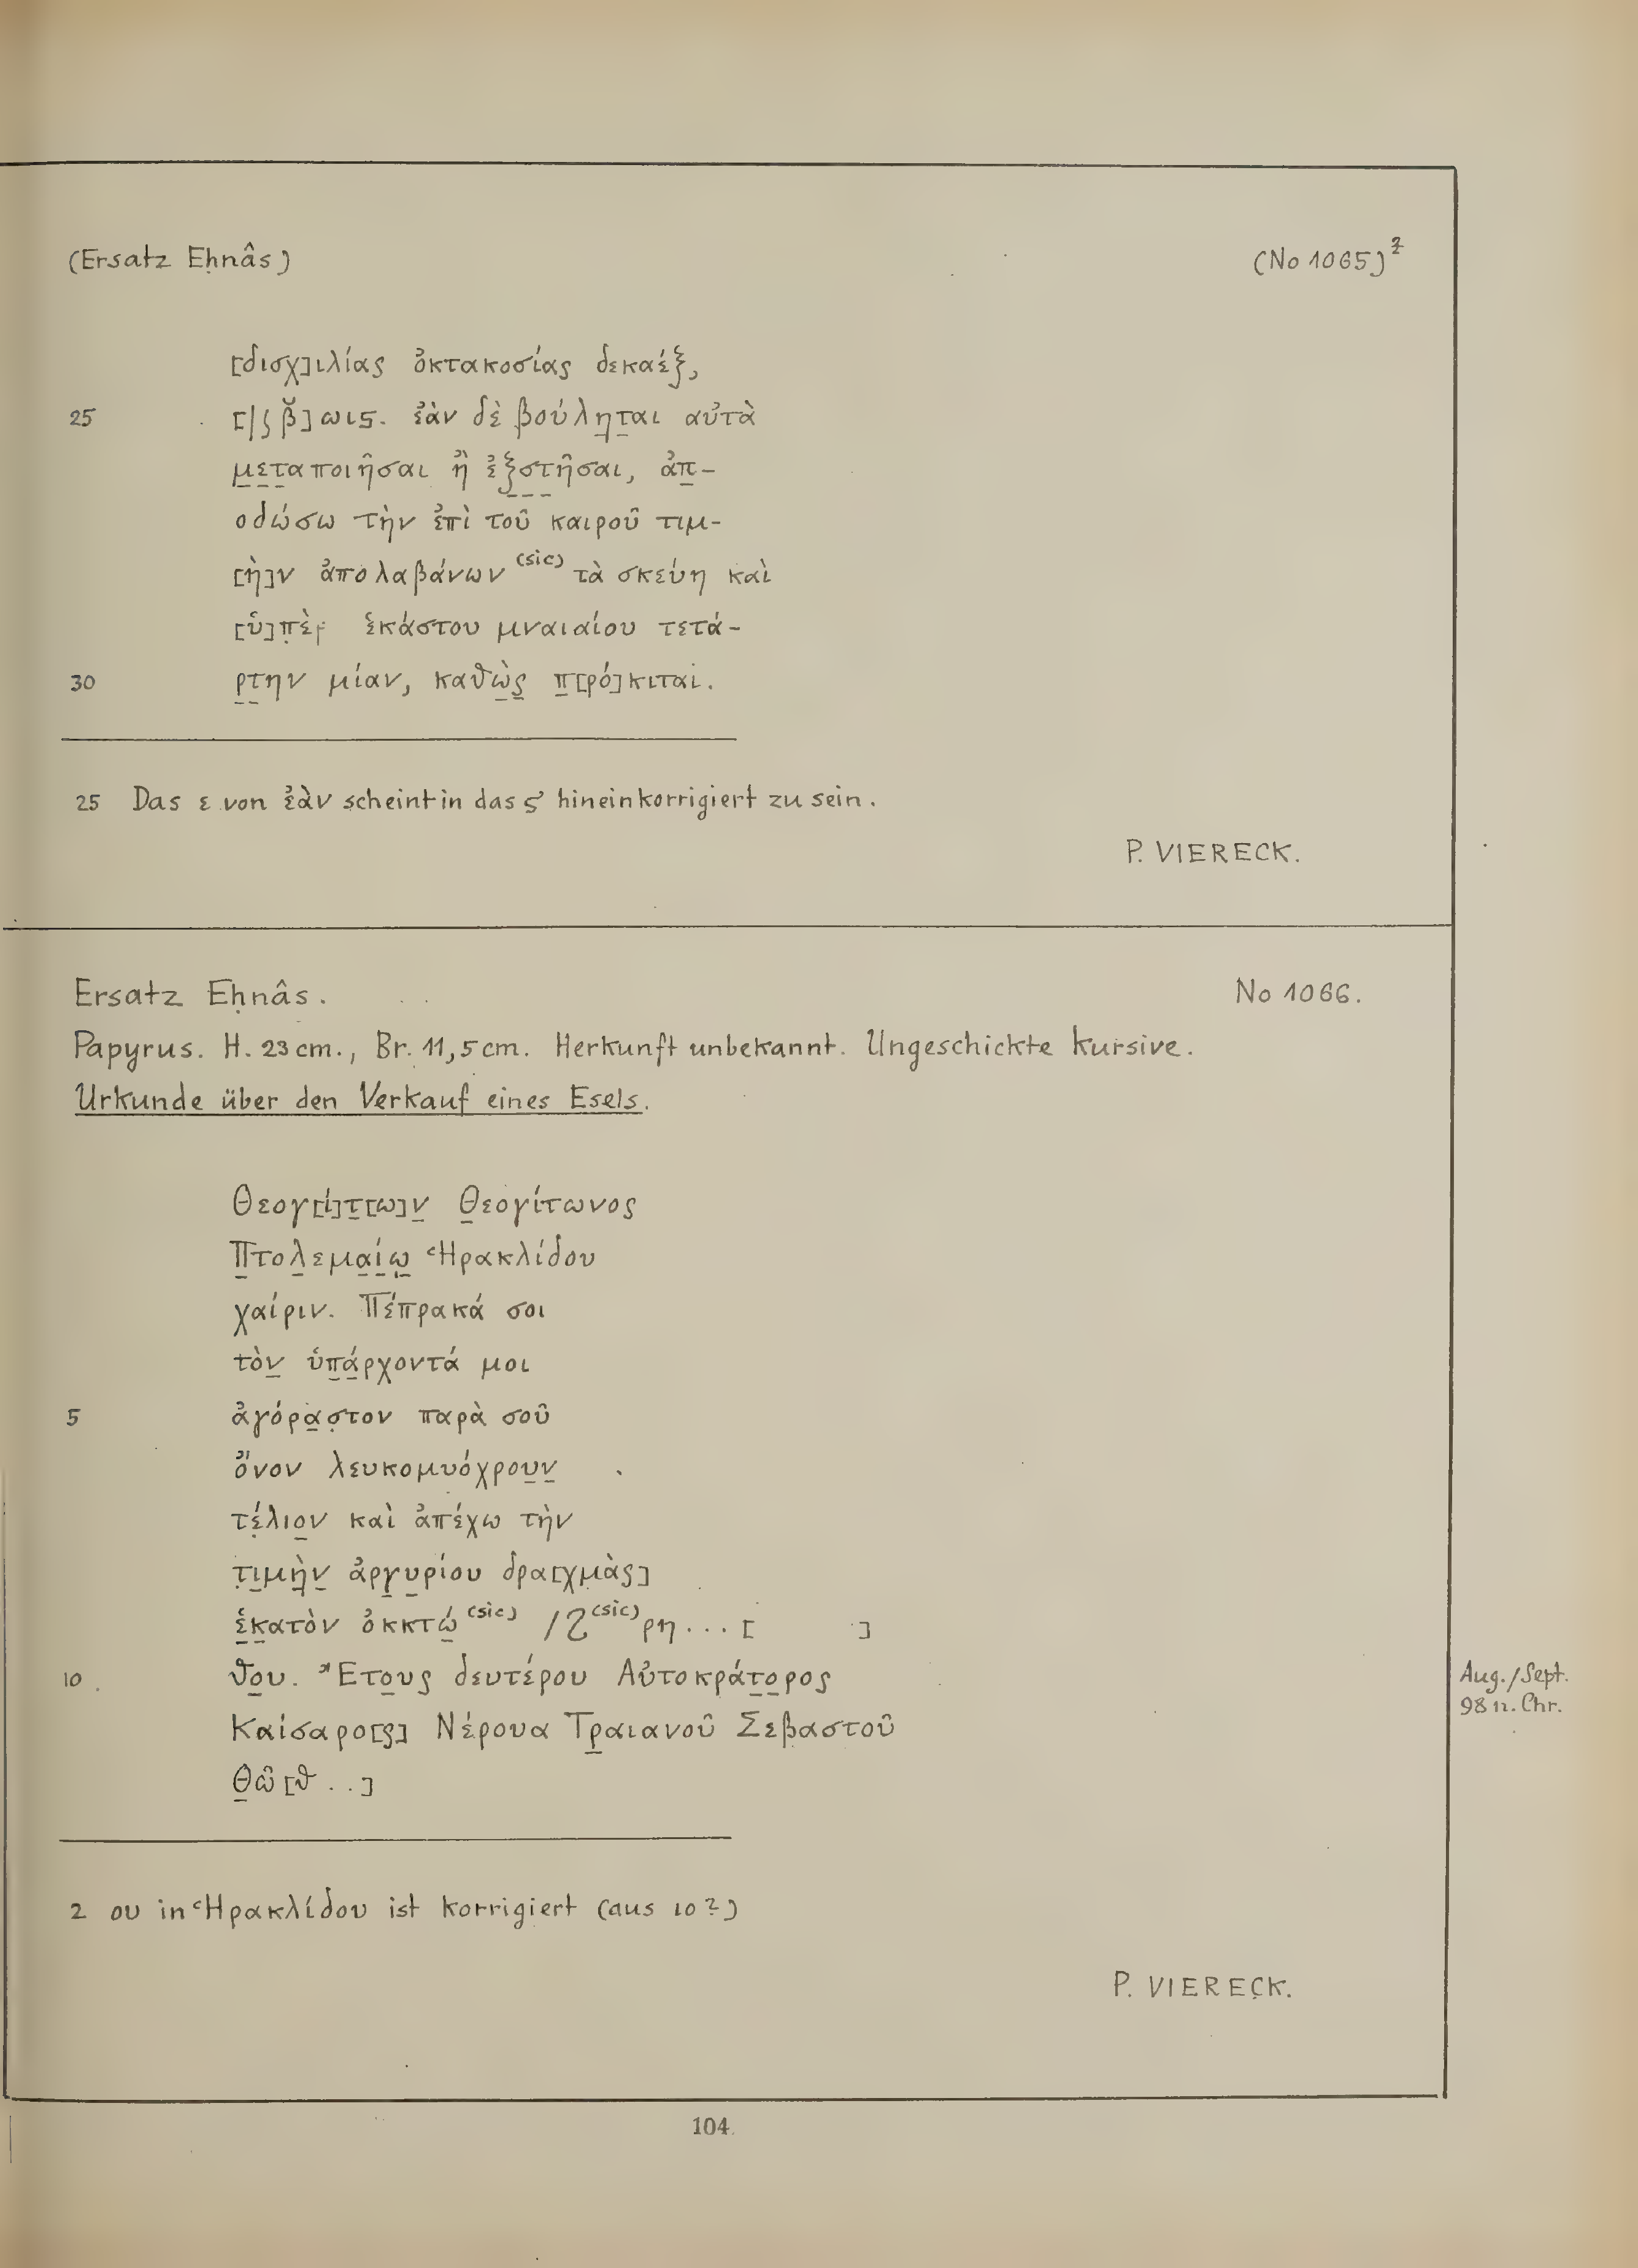 (Ersatz Eḥnâs) (No 1065)²
[δισχ]ιλίας ὀκτακοσίας δεκαέξ,
25 [/ʃ β̆]ωις. ἐὰν δὲ βούλη̣τ̣αι αὐτὰ
μ̣ε̣τ̣αποιῆσαι ἢ ἐξσ̣τ̣ῆ̣σαι, ἀπ̣-
οδώσω τὴν ἐπὶ τοῦ καιροῦ τιμ-
[ὴ]ν ἀπολαβάνων (sic) τὰ σκεύη καὶ
[ὑ]π̣ὲρ̣ ἑκάστου μναιαίου τετά-
30 ρ̣τ̣ην μίαν, καθὼ̣ς̣ π̣[ρό]κιται.
25 Das ε von ἐὰν scheint in das ς hineinkorrigiert zu sein.
P. VIERECK.
Ersatz Eḥnâs. No 1066.
Papyrus. H. 23 cm., Br. 11,5 cm. Herkunft unbekannt. Ungeschickte Kursive.
Urkunde über den Verkauf eines Esels.
Θεογ[ί]τ̣[ω]ν̣ Θ̣εογίτωνος
Π̣τολ̣εμα̣ί̣ῳ̣ Ἡρακλίδου
χαίριν. Πέπρακά σοι
τὸν̣ ὑπ̣ά̣ρχοντά μοι
5 ἀγόρα̣σ̣τον παρὰ σοῦ
ὄνον λευκομυόχρου̣ν̣
τέ̣λιο̣ν καὶ ἀπέχω τὴν
τ̣ι̣μὴ̣ν̣ ἀργ̣υ̣ρίου δρα[χμὰς]
ἑ̣κ̣ατὸν ὀκκτώ̣ (sic) /Ɂ (sic) ρη...[ ]
10 θο̣υ. Ἔτο̣υς δευτέρου Αὐτοκράτ̣ο̣ρος Aug./Sept.
Καίσαρο[ς] Νέρουα Τρ̣αιανοῦ Σεβαστοῦ 98 n. Chr.
Θ̣ὼ[θ ..]
2 ου in Ἡρακλίδου ist korrigiert (aus ιο?)
P. VIERECK.
104